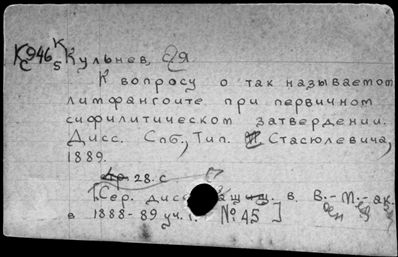 К946 К5 Кульнев, СЯ
К вопросу о так называемом
лимфангоите при первичном
сифилитическом затвердении.
Дисс. Спб., Тип. М Стасюлевича,
1889.
28. с
[Сер. дисс. в. В.-М.-ак.
в 1888-89 уч. г. №45]